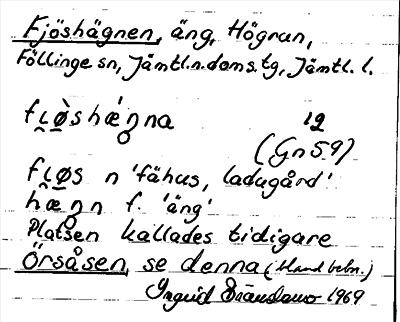 Fjöshägnen, äng, Högrun,
Föllinge sn, Jämtl.n.doms.tg, Jämtl. l.
fi̯ø̀shæ̀ŋna 12
(Gn59)
fi̯øs n 'fähus, ladugård'
hæŋn f. 'äng'
Platsen kallades tidigare
Örsåsen, se denna (bland bebn.)
Ingrid 1969